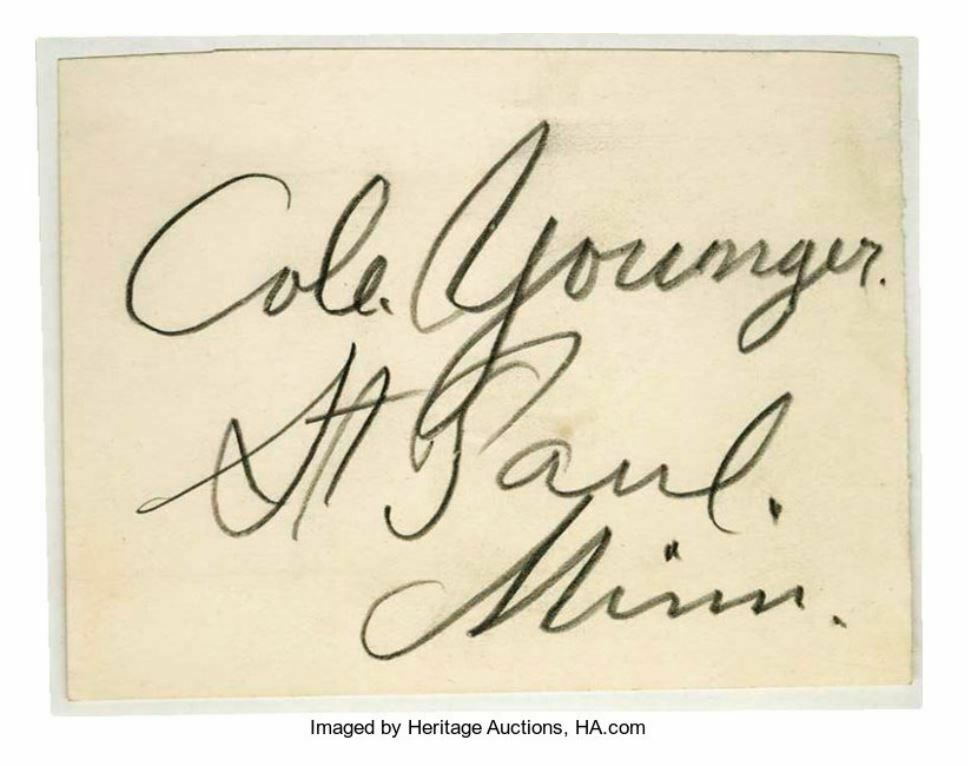 Cole Younger.
St Paul.
Minn.
Imaged by Heritage Auctions, HA.com